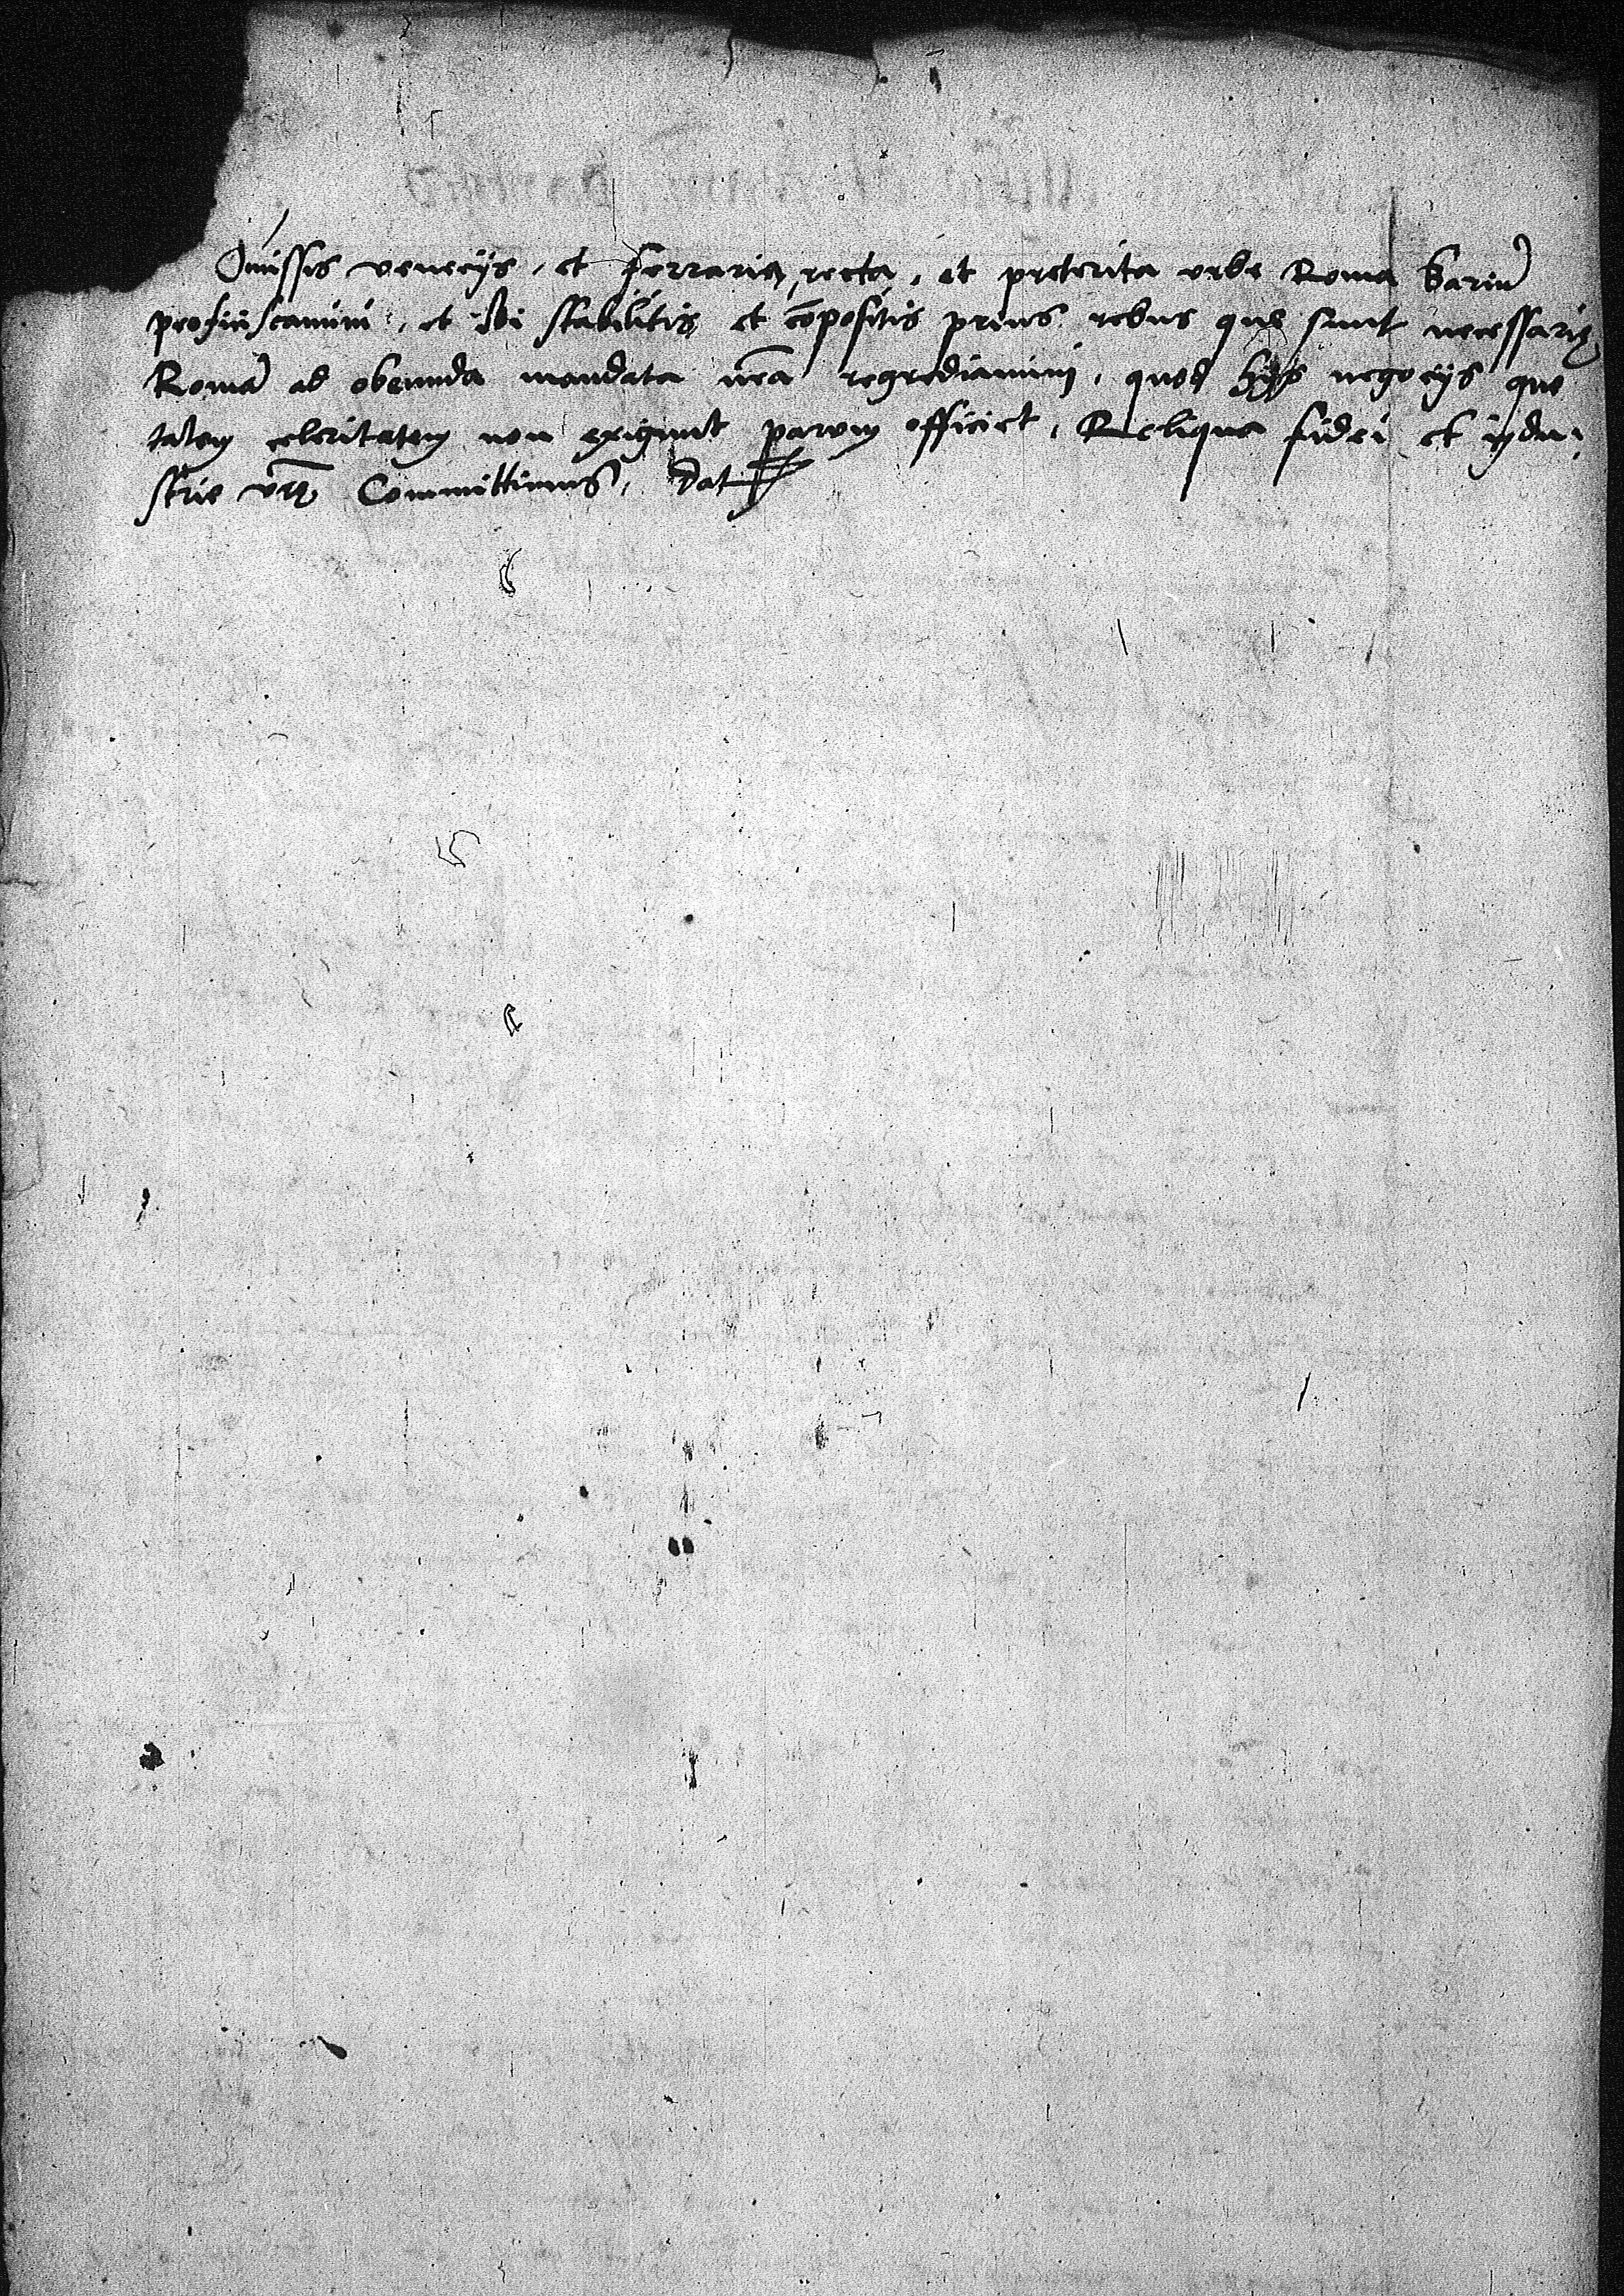 Omissis venecijs, et ferraria, recta, et preterita vrbe Roma Bariu͂
proficiscamini, et ibi stabilitis et co͂positis prius rebus que sunt necessarie
Roma͂ ad obeunda mandata n͞ra regrediamini, quod hijs negocijs que
talem celeritatem non exigunt parum officiet, Reliqua fidei et indu-
strie vr͞e Committimus, Dat